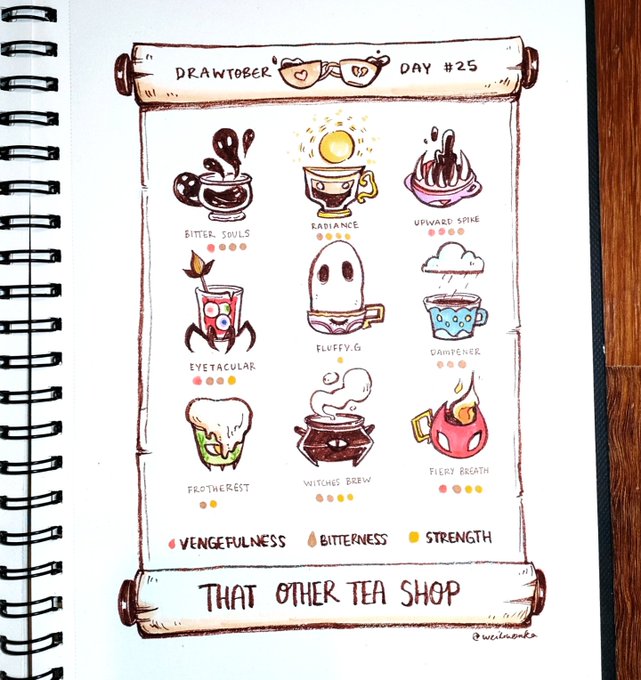 DRAWTOBER DAY #25
BITTER SOULS
RADIANCE
UPWARD SPIKE
EYETACULAR
FLUFFY.G
DAMPENER
FROTHEREST
WITCHES BREW
FIERY BREATH
VENGEFULNESS BITTERNESS STRENGTH
THAT OTHER TEA SHOP